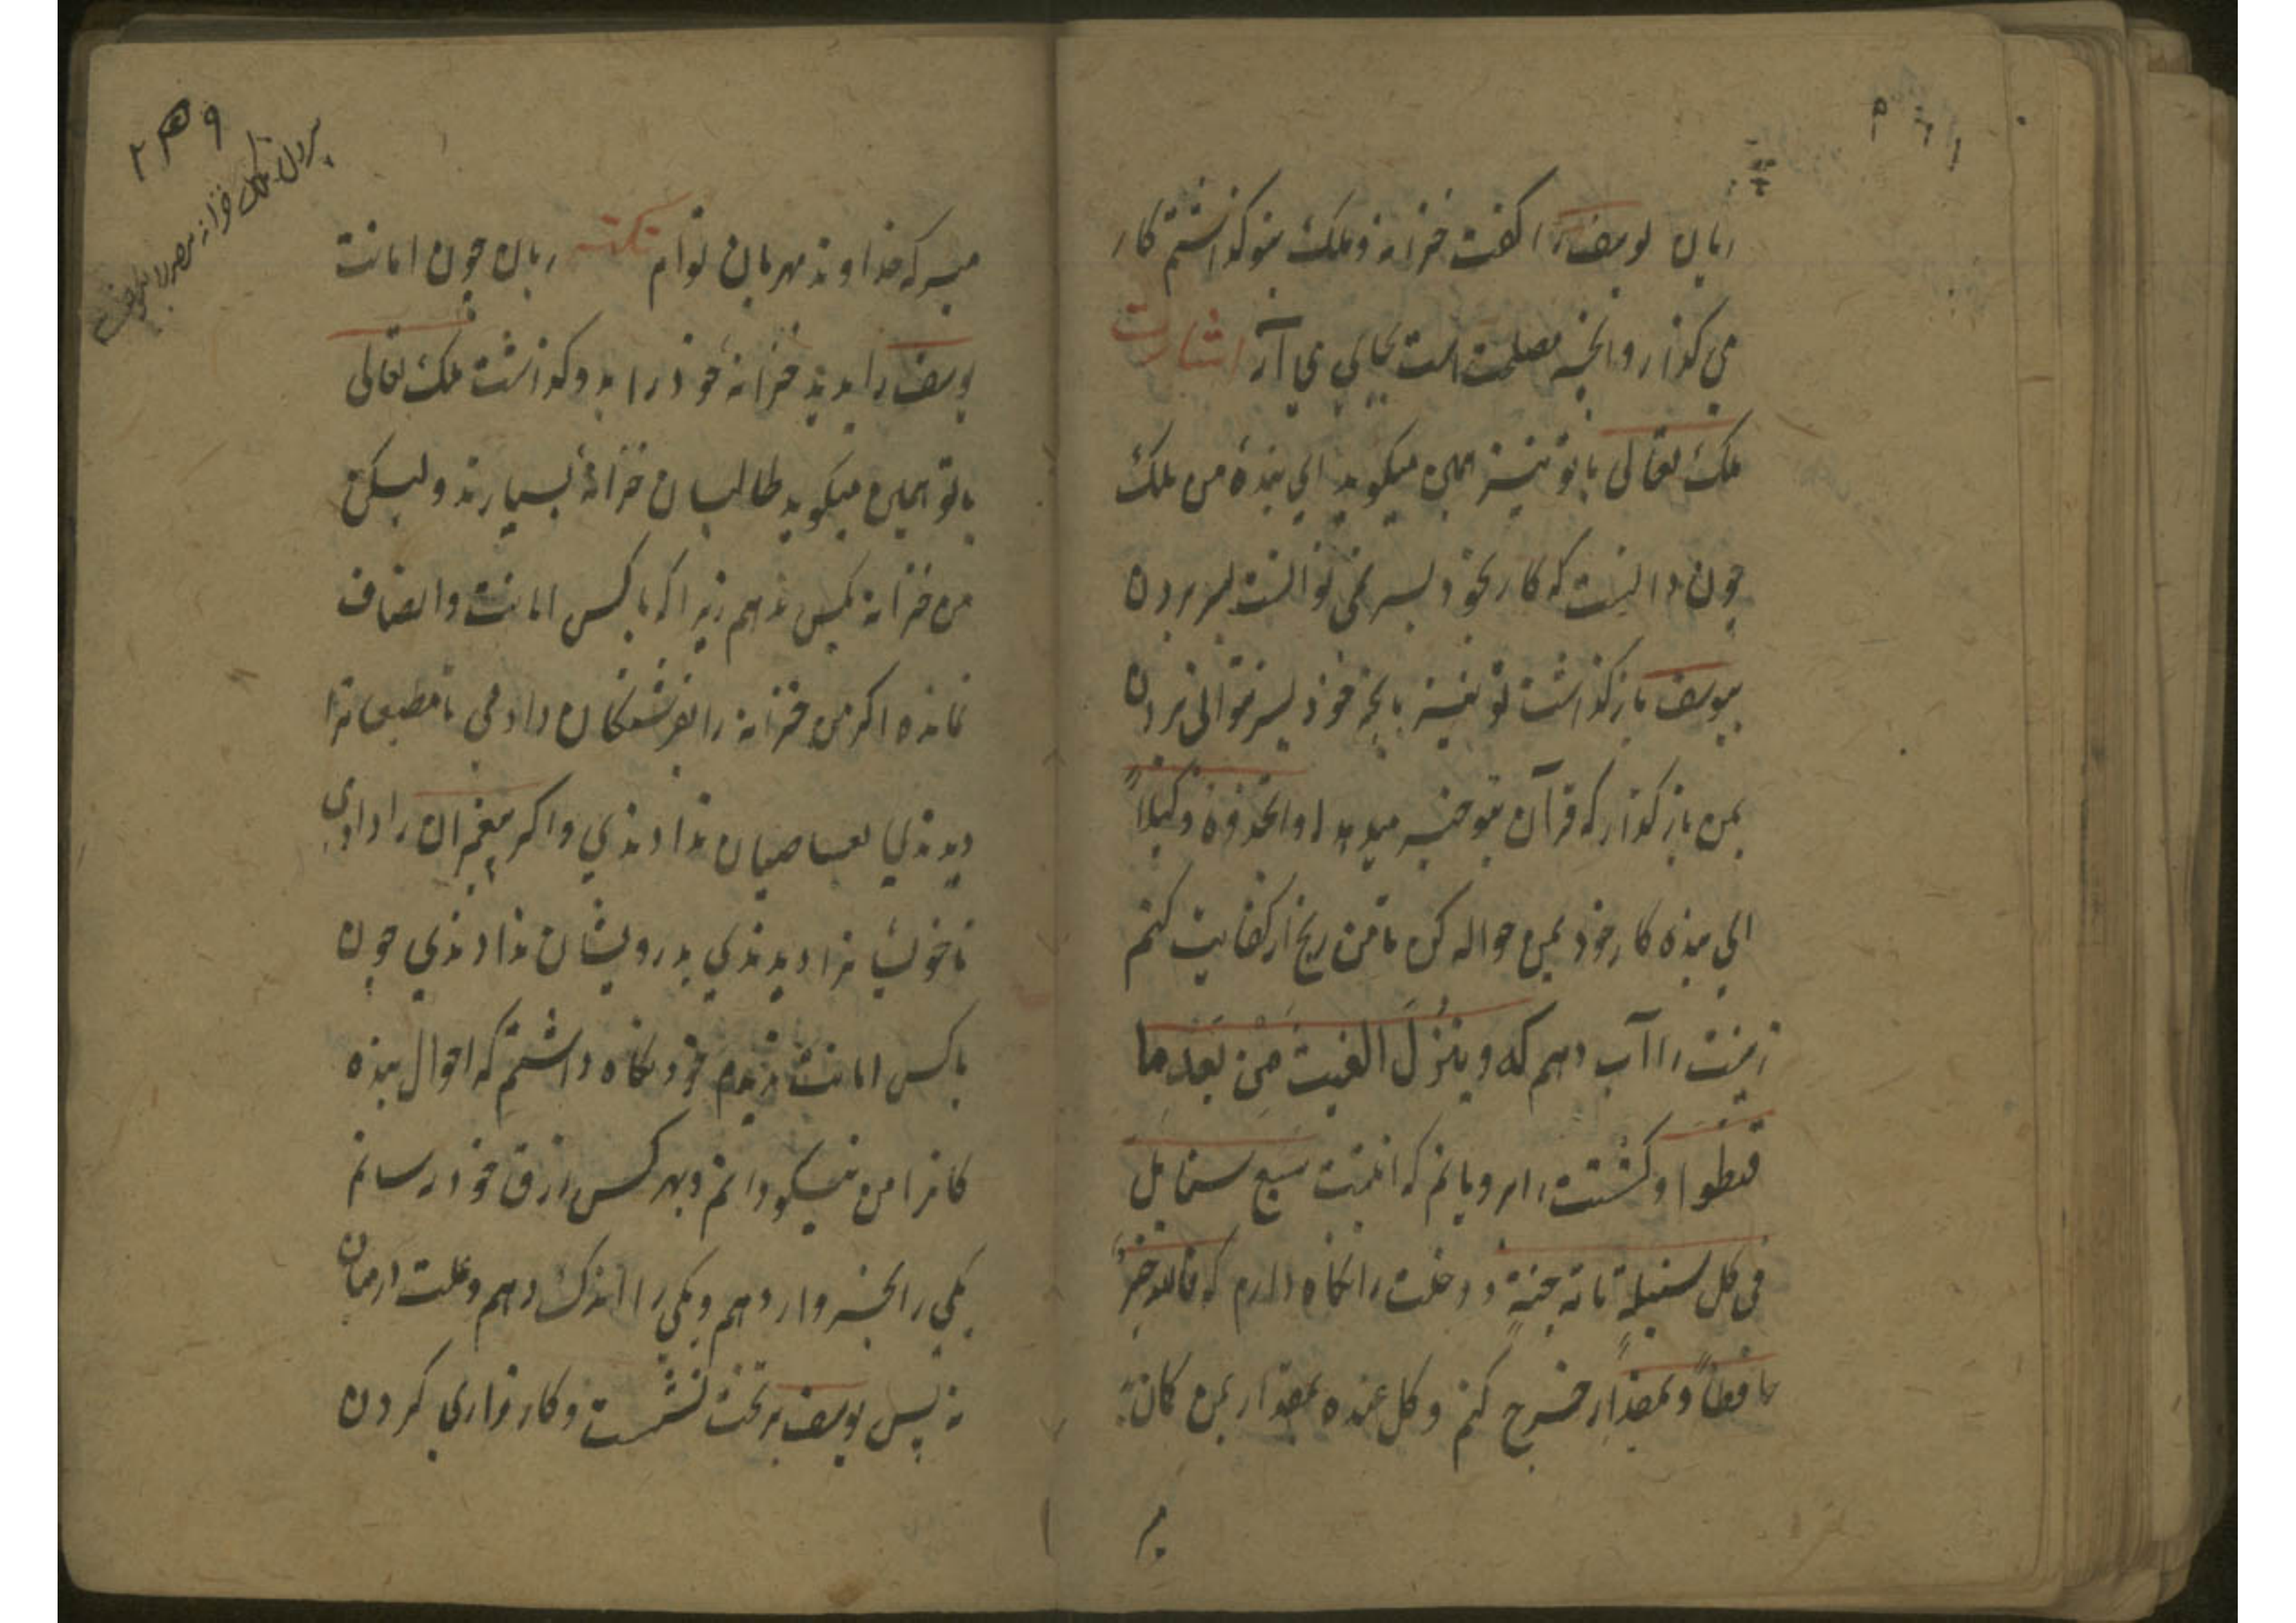 ریان یوسف را گفت خزانه و ملک بتو گذاشتم کار
می گذار و انچه مصلحت است بجای می آر اشارت
ملک تعالی با تو نیز همین میگوید ای بنده من ملک
چون دانست که کار بخود بسر نمی توانست بسر بردن
بیوسف باز گذاشت تو نیز بعجز خود بسر نتوانی بردن
بمن باز گذار که قرآن بتو خبر میدهد فاتخذوه وکیلاً
ای بنده کار خود بمن حواله کن تا من کفایت کنم
زمینت را آب دهم که وینزل الغیث من بعد ما
قنطوا و کشتت را برویانم که انبتت سبع سنابل
فی کل سنبلة مائة حبة و دخلت را نگاه دارم که فالله خیرٌ
حافظاً و بمقدار خرج کنم و کل عنده بمقدار بمن کان
مبر
۲۵۹
مبر که خداوند مهربان توام نکته ریان چون امانت
یوسف را بدید خزانه خود را بدو گذاشت ملک تعالی
با تو همین میگوید طالبان خزانه بسیارند ولیکن
من خزانه بکس ندهم زیرا که با کس امانت و انصاف
نمانده اگر من خزانه را بفرشتگان دادمی تا مطیعانرا
دیدندی بعاصیان ندادندی و اگر پیغمبران را دادمی
تا خویشانرا دیدندی بدرویشان ندادندی چون
با کس امانت ندیدم خود نگاه داشتم که احوال بنده
کانرا من نیکو دانم و بهر کس رزق خود رسانم
یکی را بخروار دهم و یکی را اندک دهم و علت درمیان
نه پس یوسف بر تخت نشست و کارداری کردن